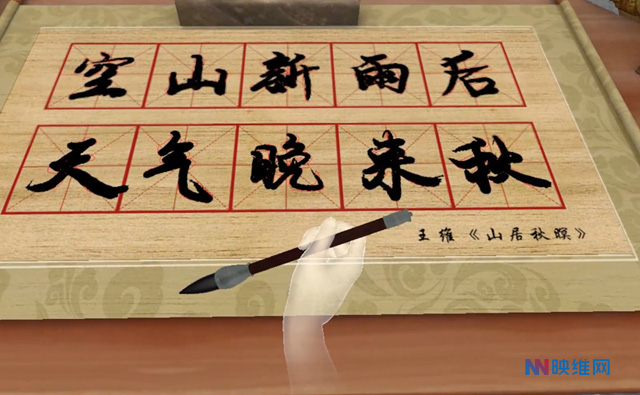 空山新雨后
天气晚来秋
王维《山居秋暝》
映维网